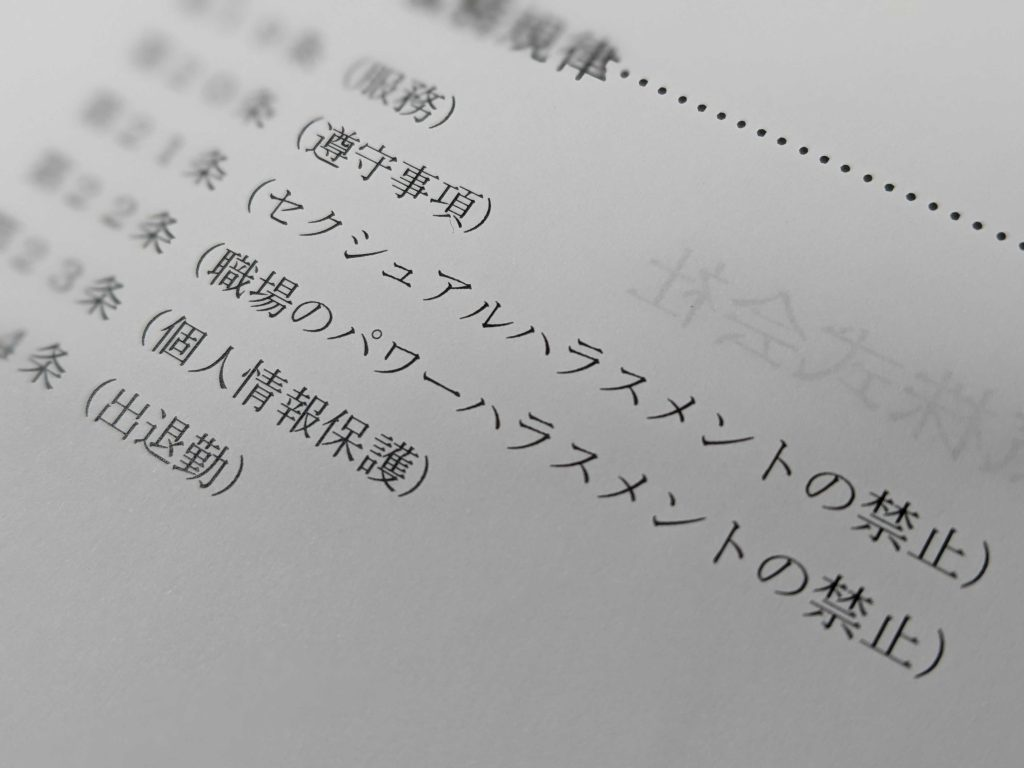 規律‥‥‥‥‥‥‥‥‥‥
条 (服務)
第20条 (遵守事項)
第21条 (セクシュアルハラスメントの禁止)
第22条 (職場のパワーハラスメントの禁止)
第23条 (個人情報保護)
4条 (出退勤)
株式会社